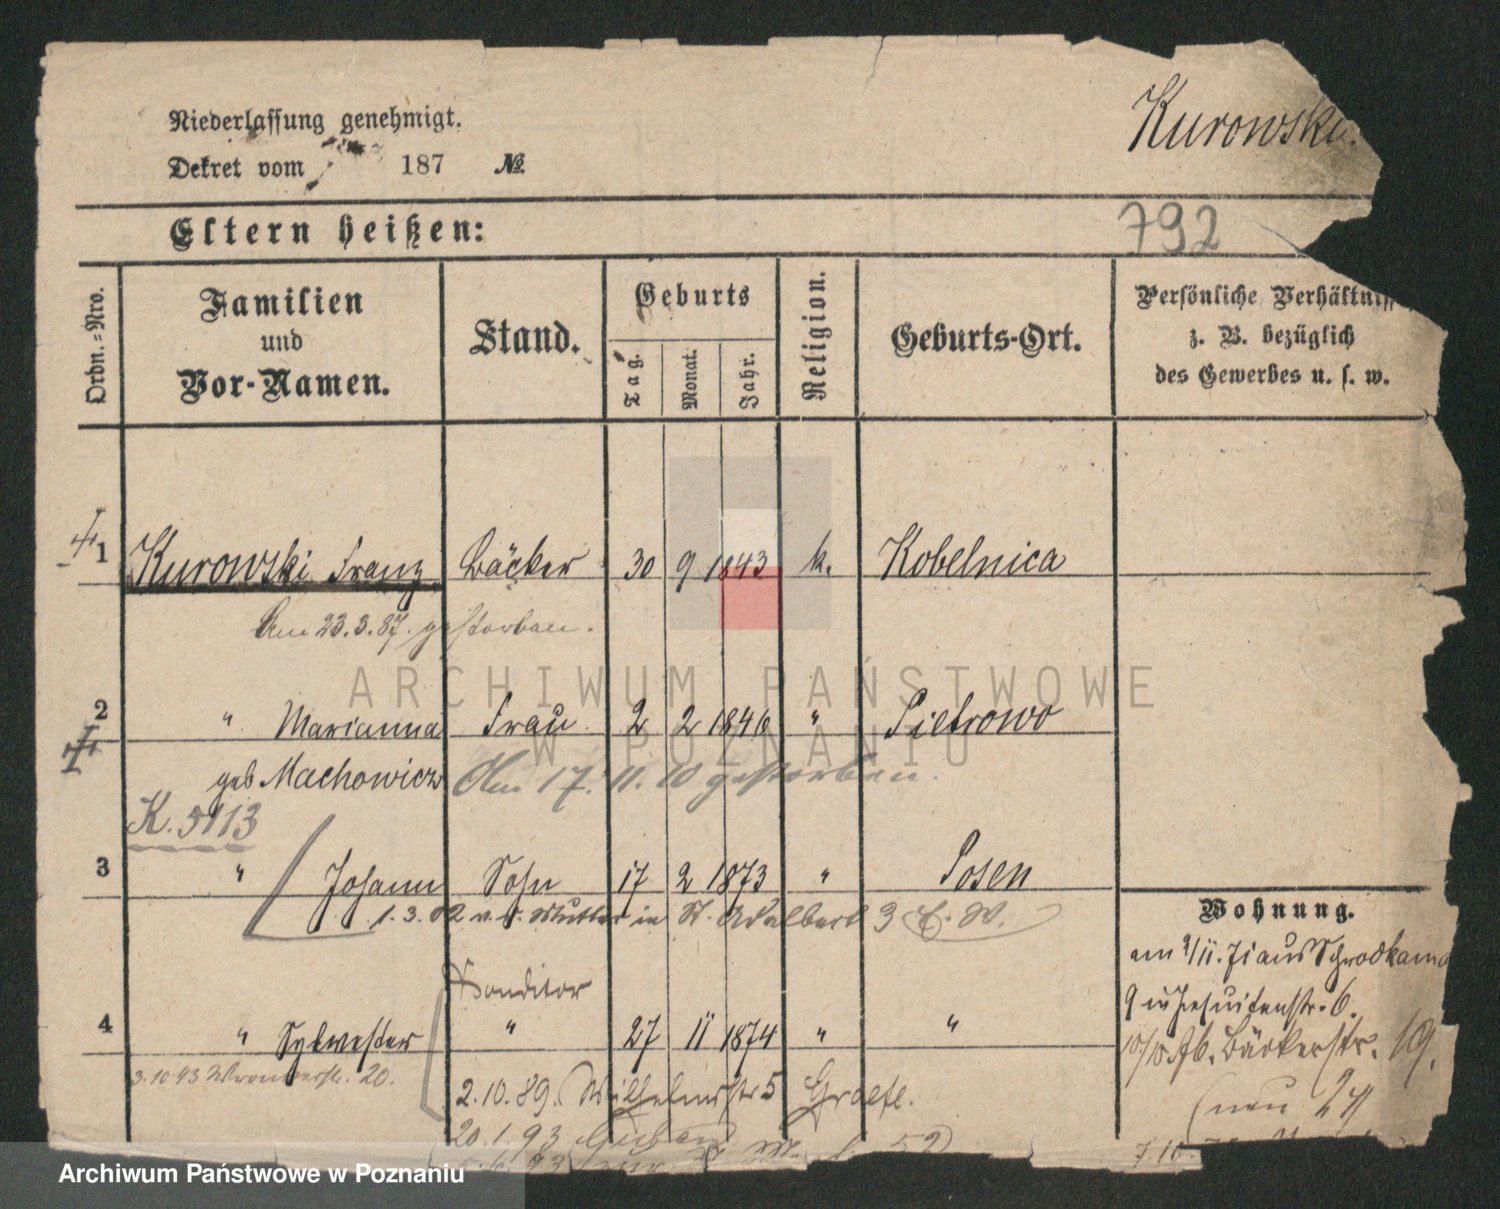 Niederlassung genehmigt.
Kurowski.
Dekret vom 187 №
Eltern heißen:
792
Ordn.-Nro.
Familien
und
Vor-Namen.
Stand.
Geburts
Tag.
Monat.
Jahr.
Religion.
Geburts-Ort.
Persönliche Verhältniss
z. B. bezüglich
des Gewerbes u. s. w.
1 Kurowski Franz Bäcker 30 9 1843 k. Kobelnica
Am 23.3.87. gestorben.
2 " Marianna Frau 2 2 1846 " Pietrowo
geb Machowicz Am 17.11.10 gestorben.
K. 5113
3 " Johann Sohn 17 2 1873 " Posen
1.3.02 v. d. Mutter in St. Adalbert 3 E. W.
Wohnung.
am 9/11. 71 aus Schrodkama
9 in Jesuitenstr. 6.
Bäckerstr. 19.
(neu 24
Konditor
4 " Sylwester " 27 11 1874 " "
3.10 93 Wronkerstr. 20.
2.10.89. Wilhelmstr 5 Graefe.
20.1.93 Guben
7.10.
ARCHIWUM PAŃSTWOWE
W POZNANIU
Archiwum Państwowe w Poznaniu